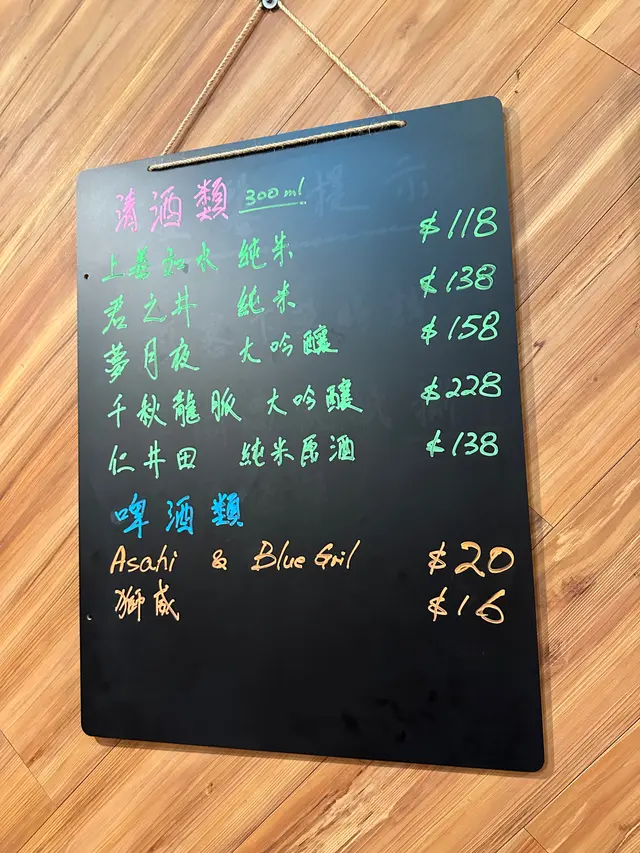 清酒類 300ml
上善如水 純米 $118
君之井 純米 $138
夢月夜 大吟釀 $158
千秋龍脈 大吟釀 $228
仁井田 純米原酒 $138
啤酒類
Asahi & Blue Gril $20
獅威 $16